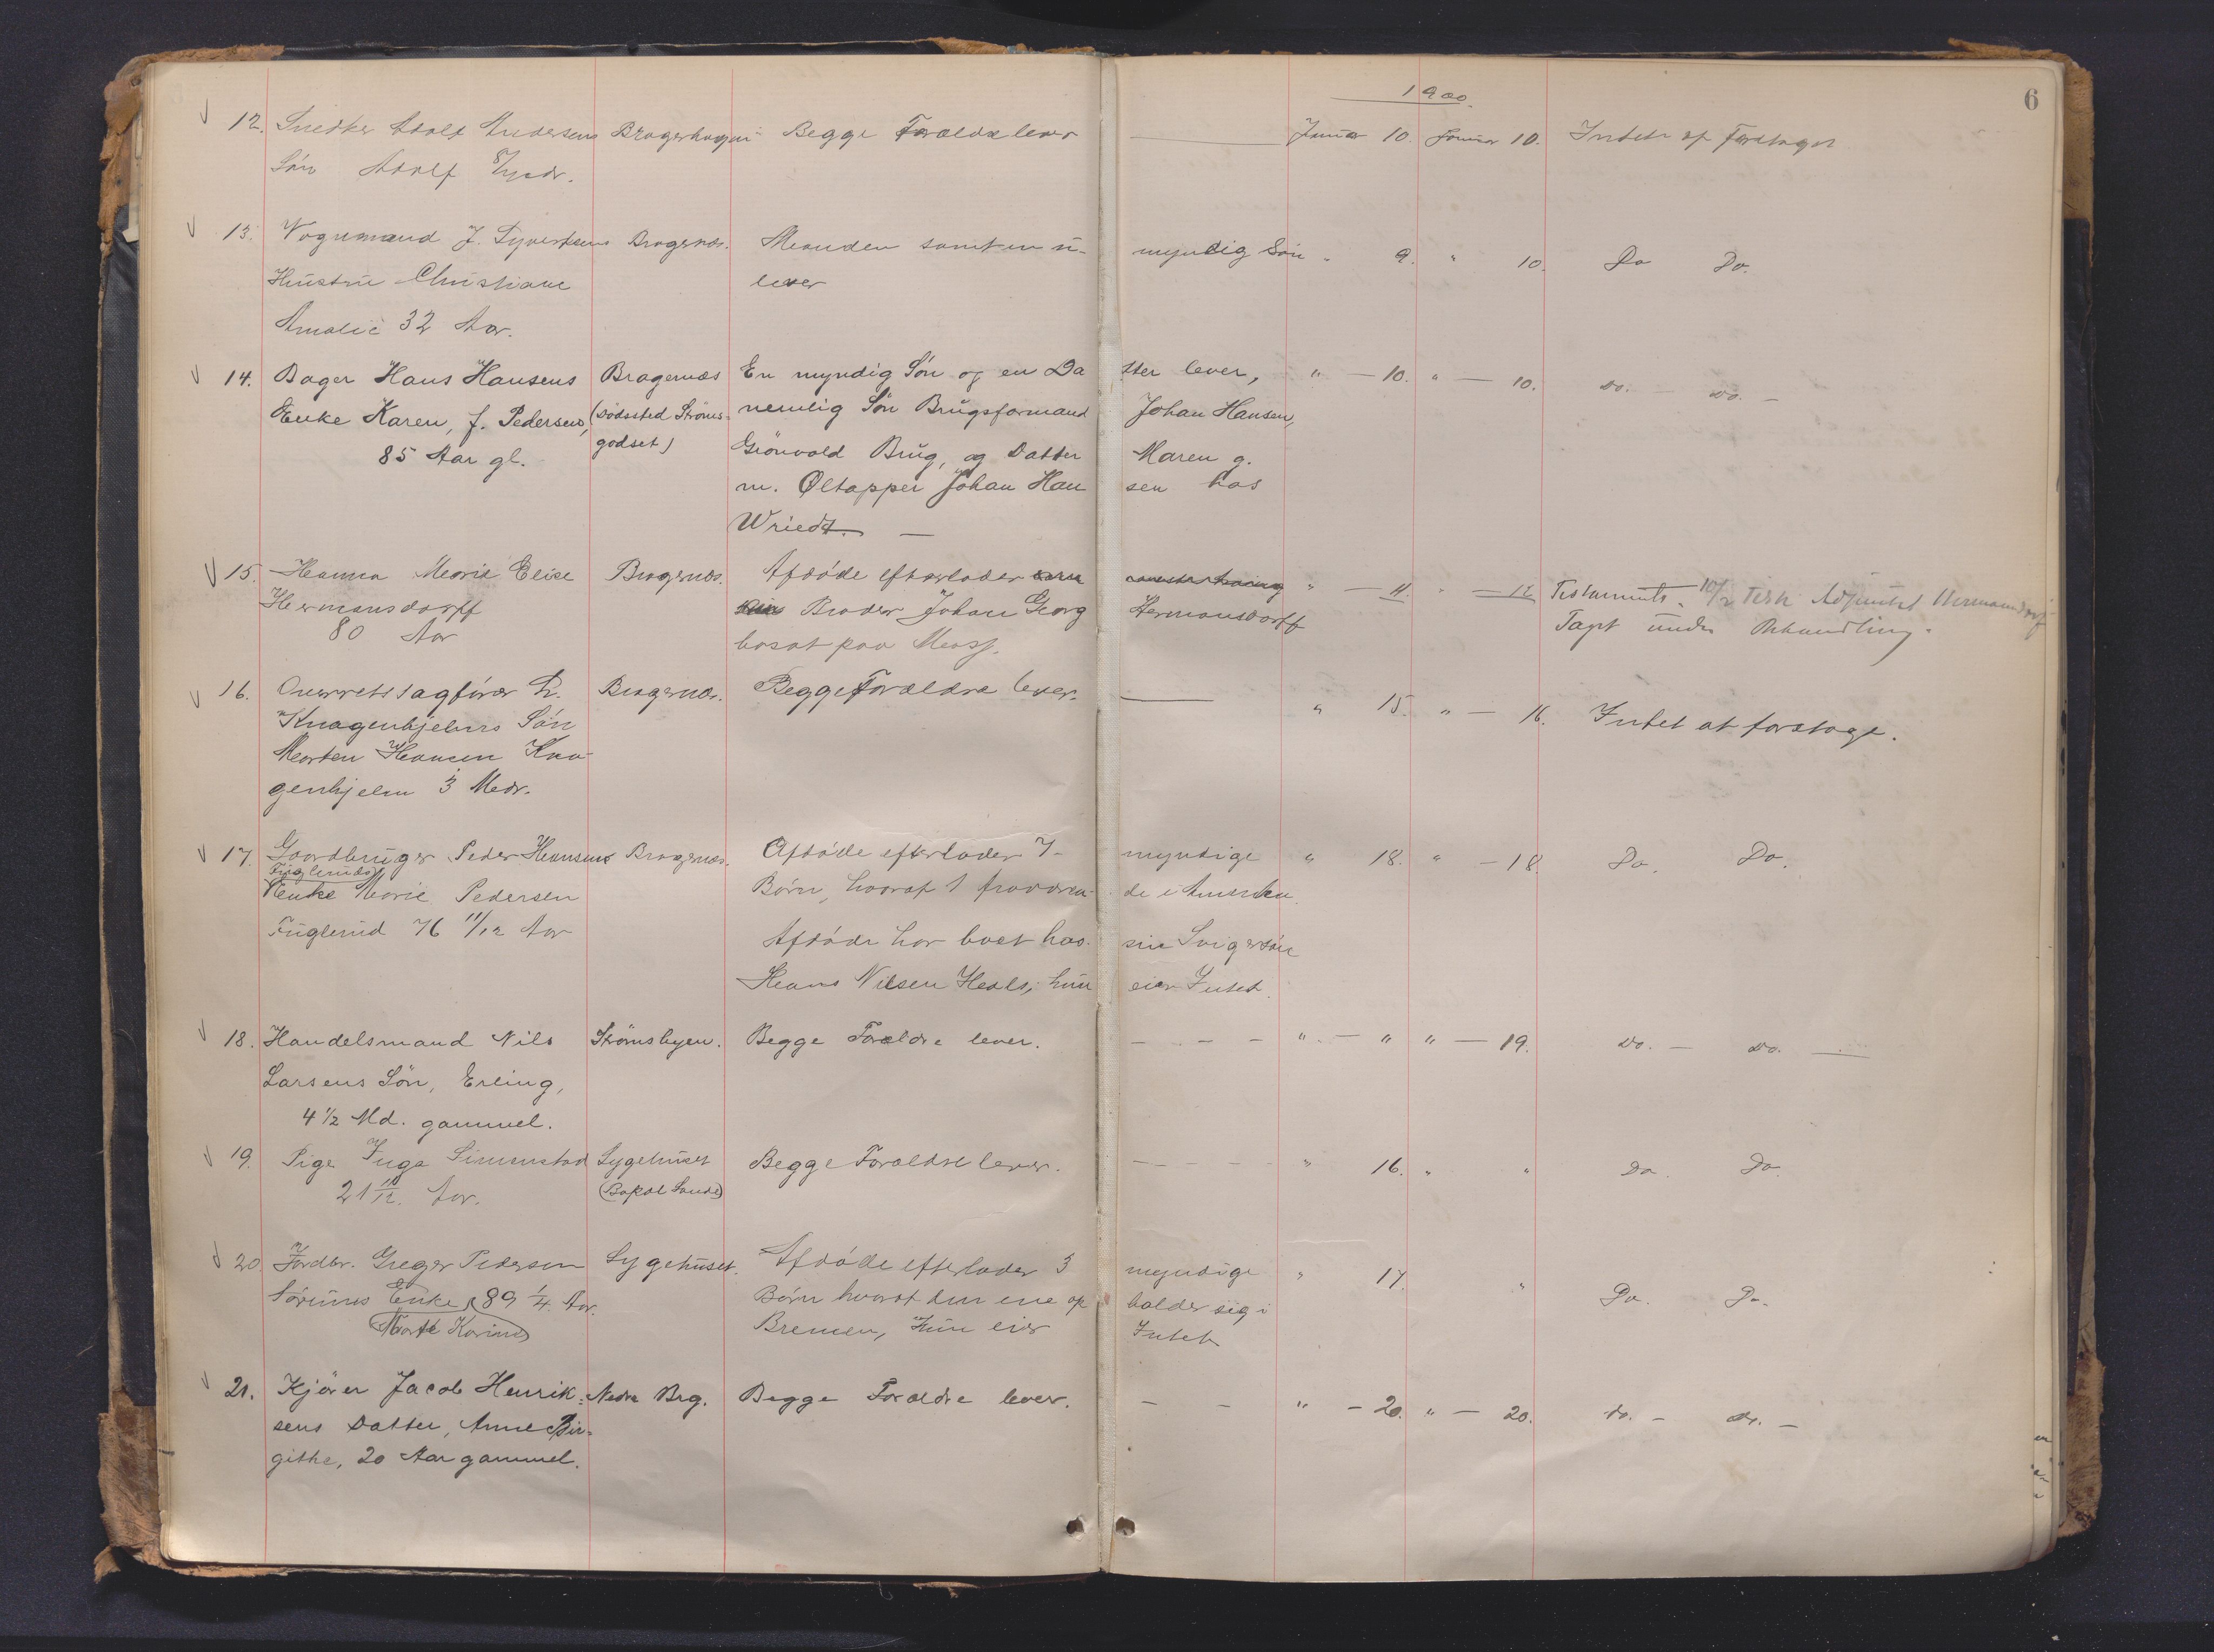 1900.
6
12. Snedker Adolf Andersens Bragerhagen Begge Forældre lever — Januar 10. Januar 10. Intet at foretaget
Søn Adolf
13. Vognmand J. Syvertsens Bragernæs. Manden samt en u- myndig Søn " 9. " 10. Do Do.
Hustru Christiane lever
Amalie 32 Aar.
14. Bager Hans Hansens Bragernæs En myndig Søn og en Da tter lever, " — 10. " — 10. do. — do. —
Enke Karen, f. Pedersen, (Dødssted Strøms- nemlig Søn Brugsformand Johan Hansen,
85 Aar gl. godset) Grönvold Brug, og Datter Maren g.
m. Øltapper Johan Han sen hos
Wriedt. —
15. Hanna Marie Elise Bragernæs. Afdøde efterlader " — 11. " — 12. Testaments. 10/2 Adjunkt Hermansdorf
Hermansdorff Broder Johan Georg Hermansdorff Tagt under Behandling.
80 Aar bosat paa Moss.
16. Overretssagfører Bragernæs. Begge Forældre lever. — " 15. " — 16. Intet at foretage.
Knagenhjelms Søn
Morten Hansen Kna-
genhjelm 3 Mdr.
17. Gaardbruger Peder Hansens Bragernæs. Afdøde efterlader 7 myndige " 18. " — 18. Do. Do.
Fuglerud
Enke Marie Pedersen Børn, hvoraf 1 fraværen- de i Amerika.
Fuglerud 76 11/12 Aar Afdøde har boet hos sin Svigersøn
Hans Nilsen Hals; hun eier Intet.
18. Handelsmand Nils Strømsbyen. Begge Forældre lever. — — — " — " " — 19. do. — do. —
Larsens Søn, Erling,
4 1/2 Md. gammel.
19. Pige Inga Simenstad Sygehuset Begge Forældre lever. — — — — " 16. " " Do. Do.
21 11/12. Aar. (Bopæl Sande)
20 Jordbr. Greger Pedersen Sygehuset. Afdøde efterlader 3 myndige " 17. " Do. Do.
Enke, 89 1/4. Aar. Børn hvoraf den ene op holder sig i
Marthe Karine Bremen, Hun eier Intet
21. Kjører Jacob Henrik- Nedre Brg. Begge Forældre lever. — — " — 20. " — 20. do. — do. —
sens Datter, Anne Bir-
githe, 20 Aar gammel.